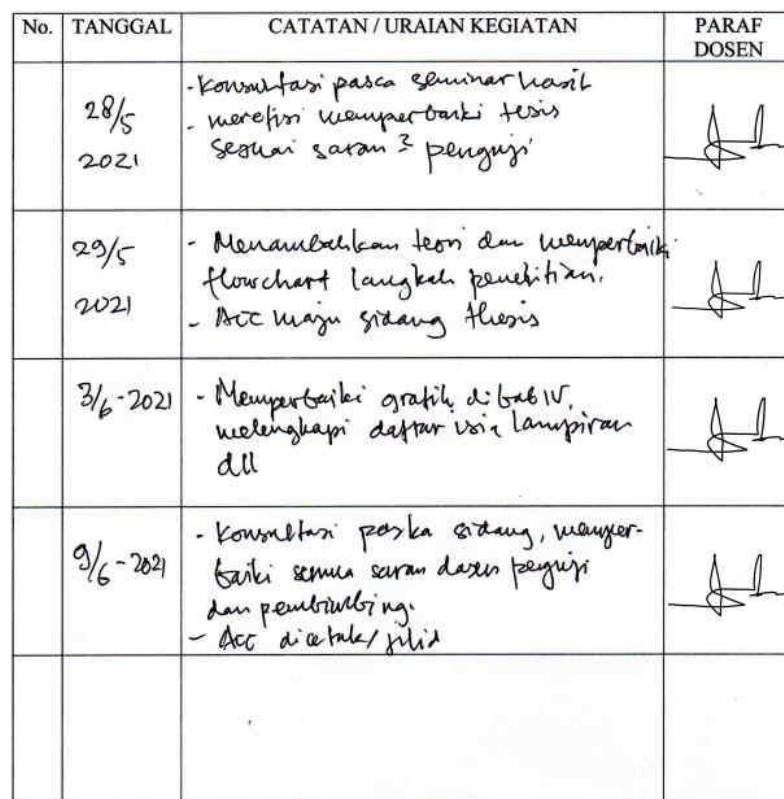 No. TANGGAL CATATAN / URAIAN KEGIATAN PARAF
DOSEN
28/5
2021
- Konsultasi pasca seminar hasil
- merefisi memperbaiki tesis
sesuai saran ² penguji
29/5
2021
- Menambahkan teori dan memperbaiki
flowchart langkah penelitian.
- Acc maju sidang thesis
3/6-2021
- Memperbaiki grafik di bab IV,
melengkapi daftar isi lampiran
dll
9/6-2021
- Konsultasi paska sidang, memper-
baiki semua saran dosen penguji
dan pembimbing.
- Acc dicetak/jilid